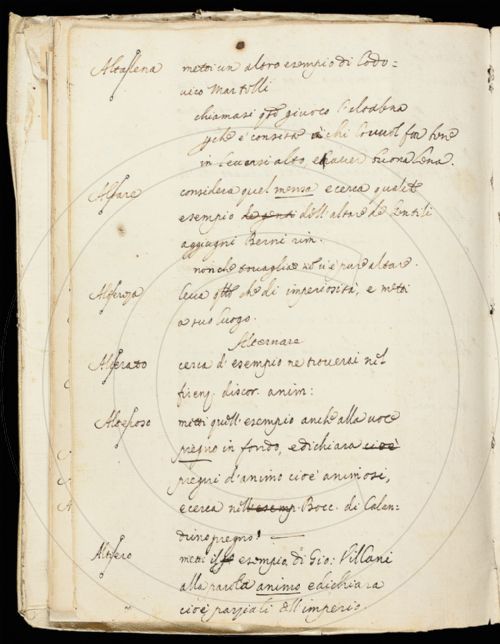 Altalena metti un altro esempio di Lodo=
vico Martelli
chiamasi qto giuoco l'altalena
pche è consueta a chi lo vuol far bene
in levarsi alto e haver buona lena.
Altare considera quel mensa e cerca qualche
esempio de genti dell'altare de Gentili
aggiugni Berni rim.
non che tovaglia no vi è pure altare.
leva qto che di imperiosità, e metti
a suo luogo.
Alternare
cerca d'esempio ne troverai nel
firenz. discor. anim:
metti quell'esempio anche alla voce
pregno in fondo, e dichiara cioè
pregni d'animo cioè animosi,
e cerca nell'esemp. Bocc. di Calan-
drino pregno!
metti esempio di Gio: Villani
alla parola animo e dichiara
cioè parziali dell'imperio